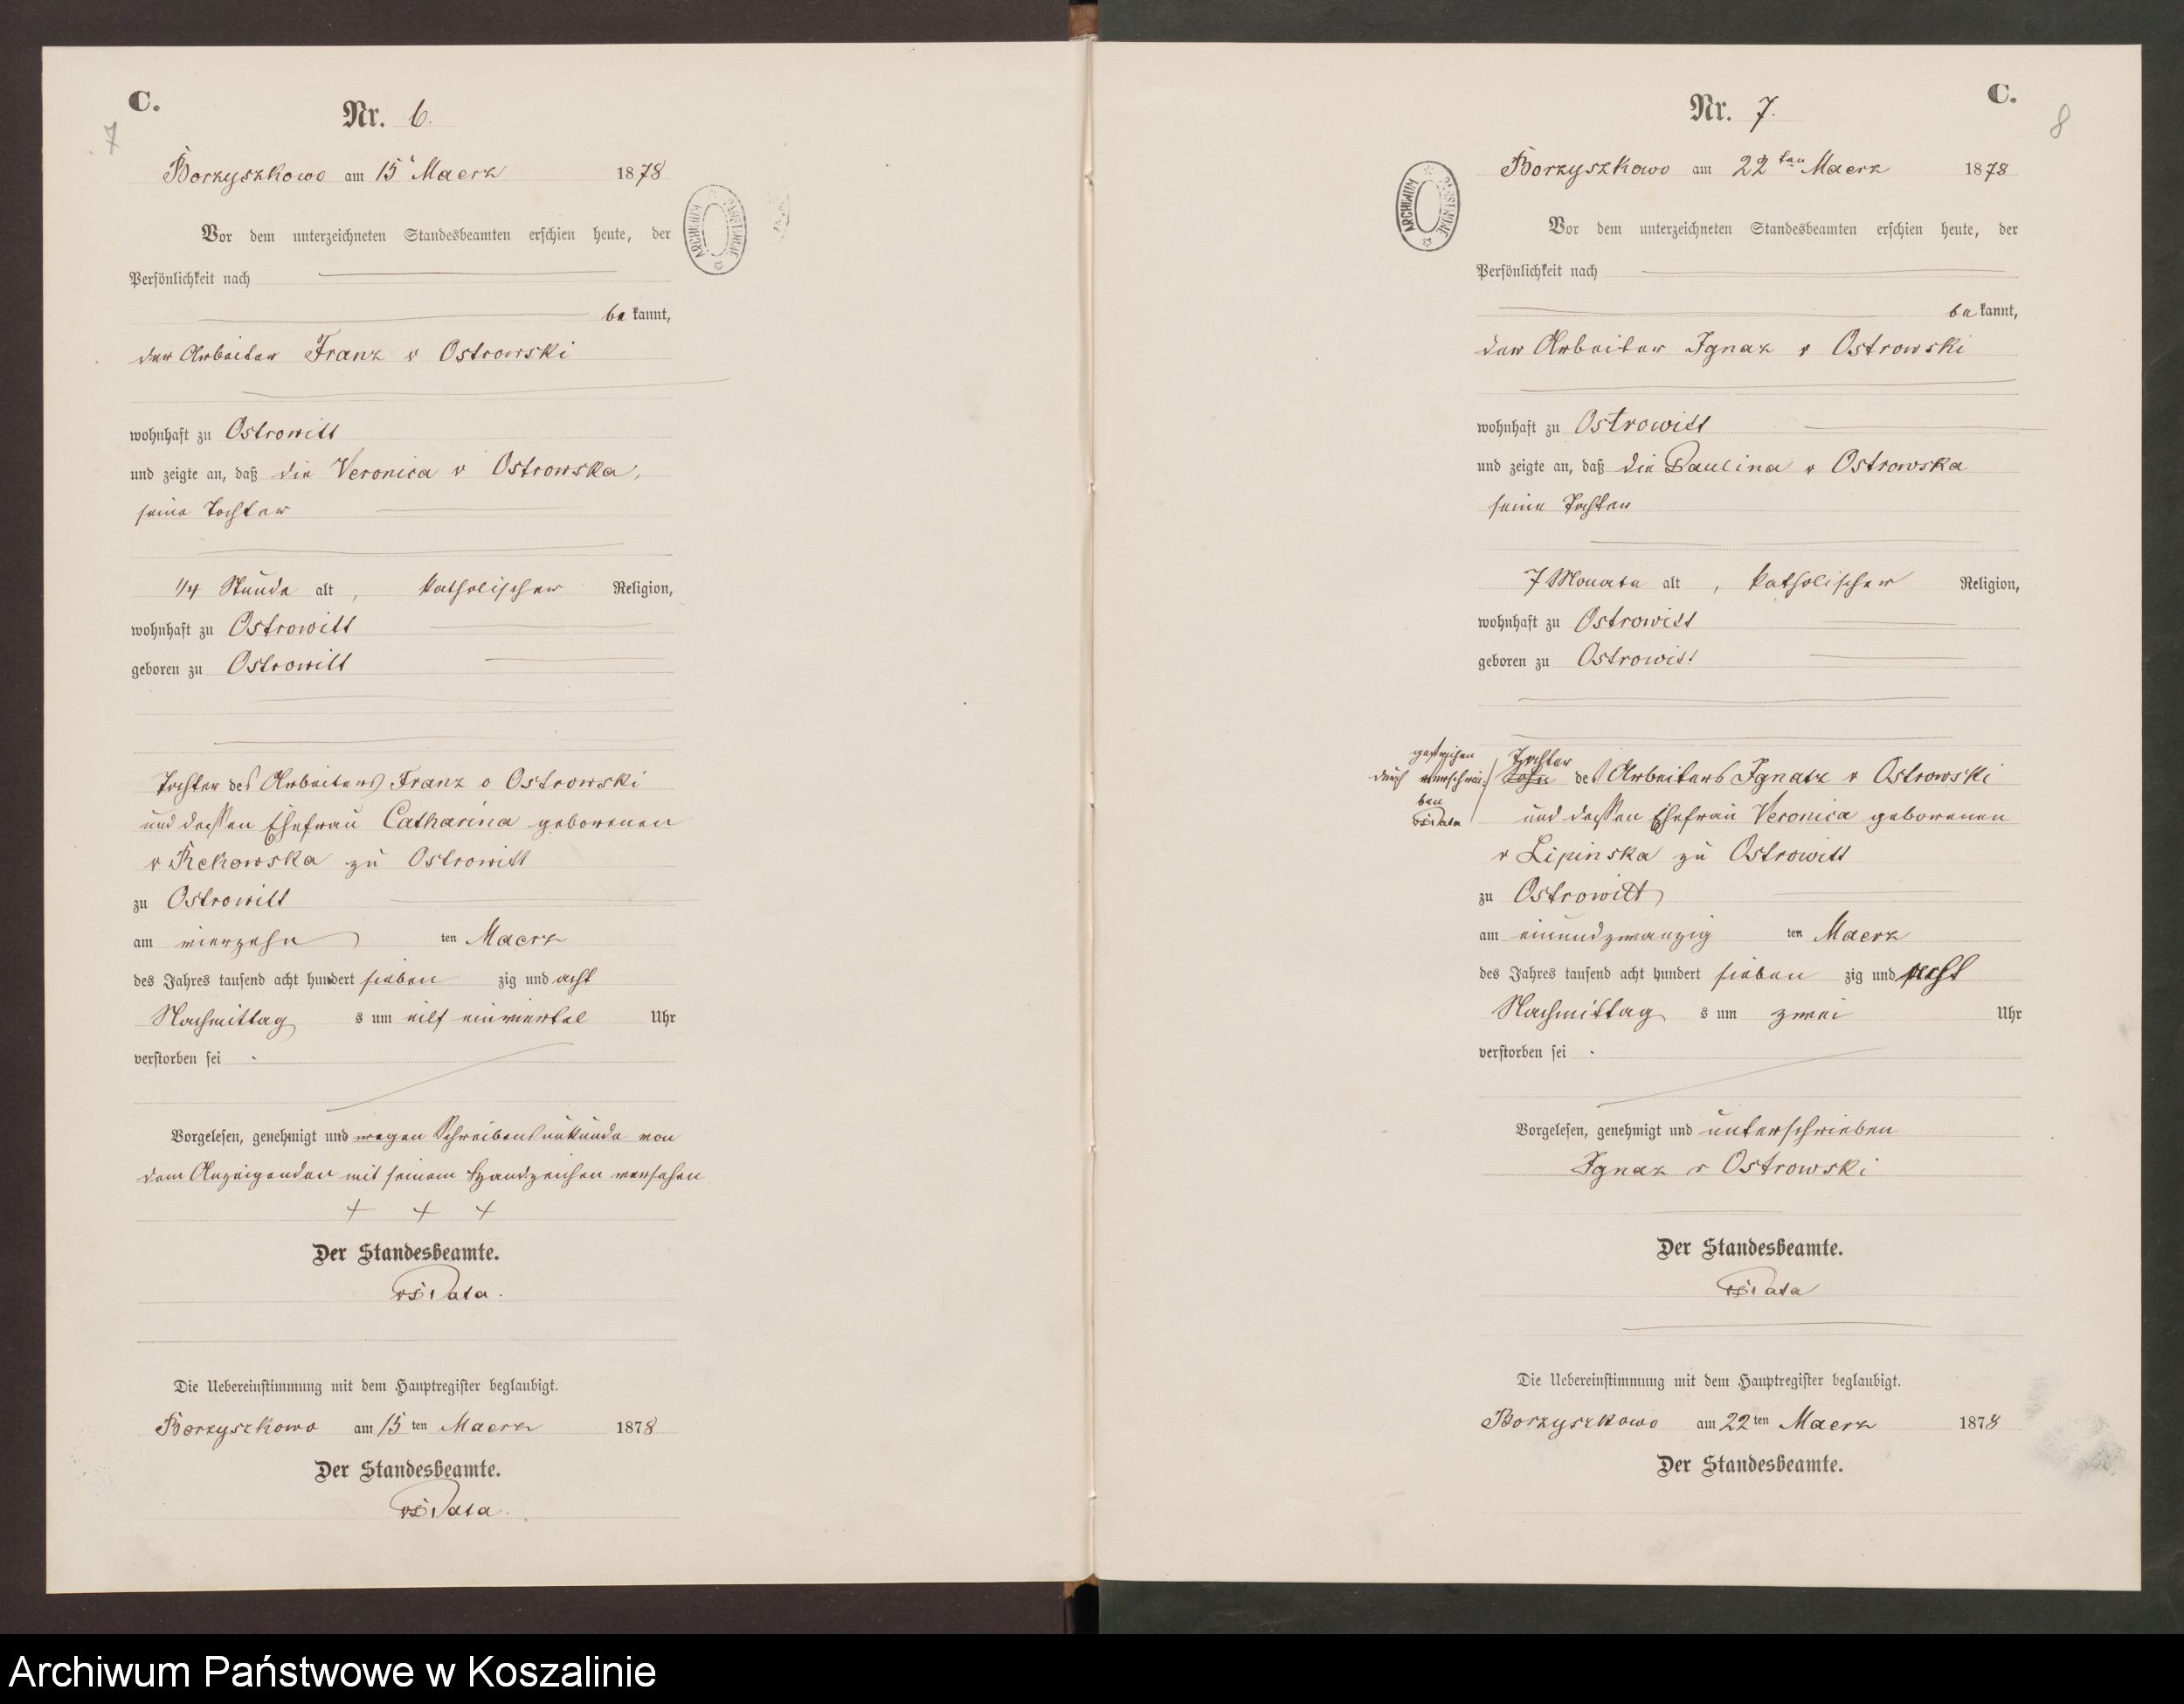 C.
7
Nr. 6.
Borzyszkowo am 15 Maerz 1878
Vor dem unterzeichneten Standesbeamten erschien heute, der
Persönlichkeit nach
be kannt,
der Arbeiter Franz v Ostrowski
wohnhaft zu Ostrowitt
und zeigte an, daß die Veronica v Ostrowska,
seine Tochter
1/4 Stunde alt, katholischer Religion,
wohnhaft zu Ostrowitt
geboren zu Ostrowitt
Tochter des Arbeiters Franz v Ostrowski
und dessen Ehefrau Catharina geborenen
v Rekowska zu Ostrowitt
zu Ostrowitt
am vierzehn ten Maerz
des Jahres tausend acht hundert sieben zig und acht
Nachmittag s um eilf einviertel Uhr
verstorben sei .
Vorgelesen, genehmigt und wegen Schreibensunkunde von
dem Anzeigenden mit seinem Handzeichen versehen
+ + +
Der Standesbeamte.
Die Uebereinstimmung mit dem Hauptregister beglaubigt.
Borzyszkowo am 15 ten Maerz 1878
Der Standesbeamte.
ARCHIWUM PAŃSTWOWE
C.
8
Nr. 7.
Borzyszkowo am 22 ten Maerz 1878
Vor dem unterzeichneten Standesbeamten erschien heute, der
Persönlichkeit nach
be kannt,
der Arbeiter Ignaz v Ostrowski
wohnhaft zu Ostrowitt
und zeigte an, daß die Paulina v Ostrowska
seine Tochter
7 Monate alt, katholischer Religion,
wohnhaft zu Ostrowitt
geboren zu Ostrowitt
gestrichen
durch
Tochter
Sohn des Arbeiters Ignatz v Ostrowski
und dessen Ehefrau Veronica geborenen
v Lipinska zu Ostrowitt
zu Ostrowitt
am einundzwanzig ten Maerz
des Jahres tausend acht hundert sieben zig und acht
Nachmittag s um zwei Uhr
verstorben sei .
Vorgelesen, genehmigt und unterschrieben
Ignaz v Ostrowski
Der Standesbeamte.
Die Uebereinstimmung mit dem Hauptregister beglaubigt.
Borzyszkowo am 22 ten Maerz 1878
Der Standesbeamte.
ARCHIWUM PAŃSTWOWE
Archiwum Państwowe w Koszalinie